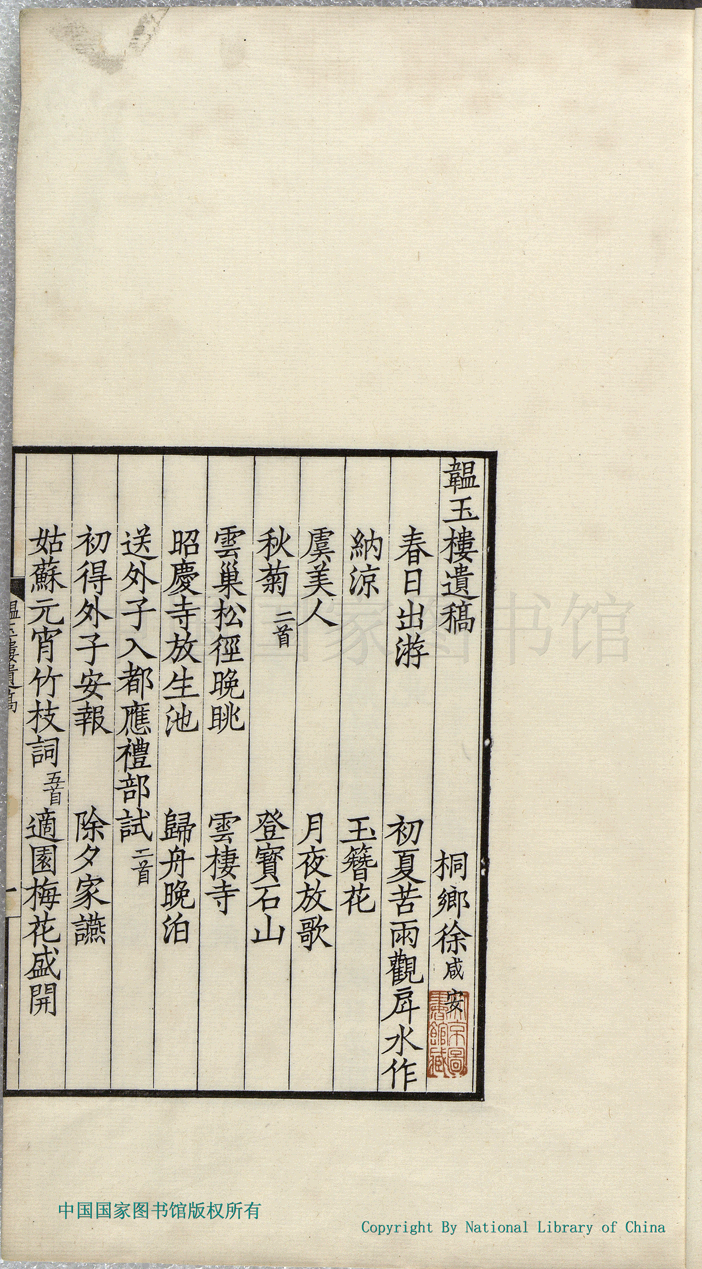 韞玉樓遺稿
桐鄉徐咸安
春日出游 初夏苦雨觀戽水作
納涼 玉簪花
虞美人 月夜放歌
秋菊二首 登寶石山
雲巢松徑晚眺 雲棲寺
昭慶寺放生池 歸舟晚泊
送外子入都應禮部試二首
初得外子安報 除夕家讌
姑蘇元宵竹枝詞五首 適園梅花盛開
韞玉樓遺稿
一
中国国家图书馆版权所有
Copyright By National Library of China